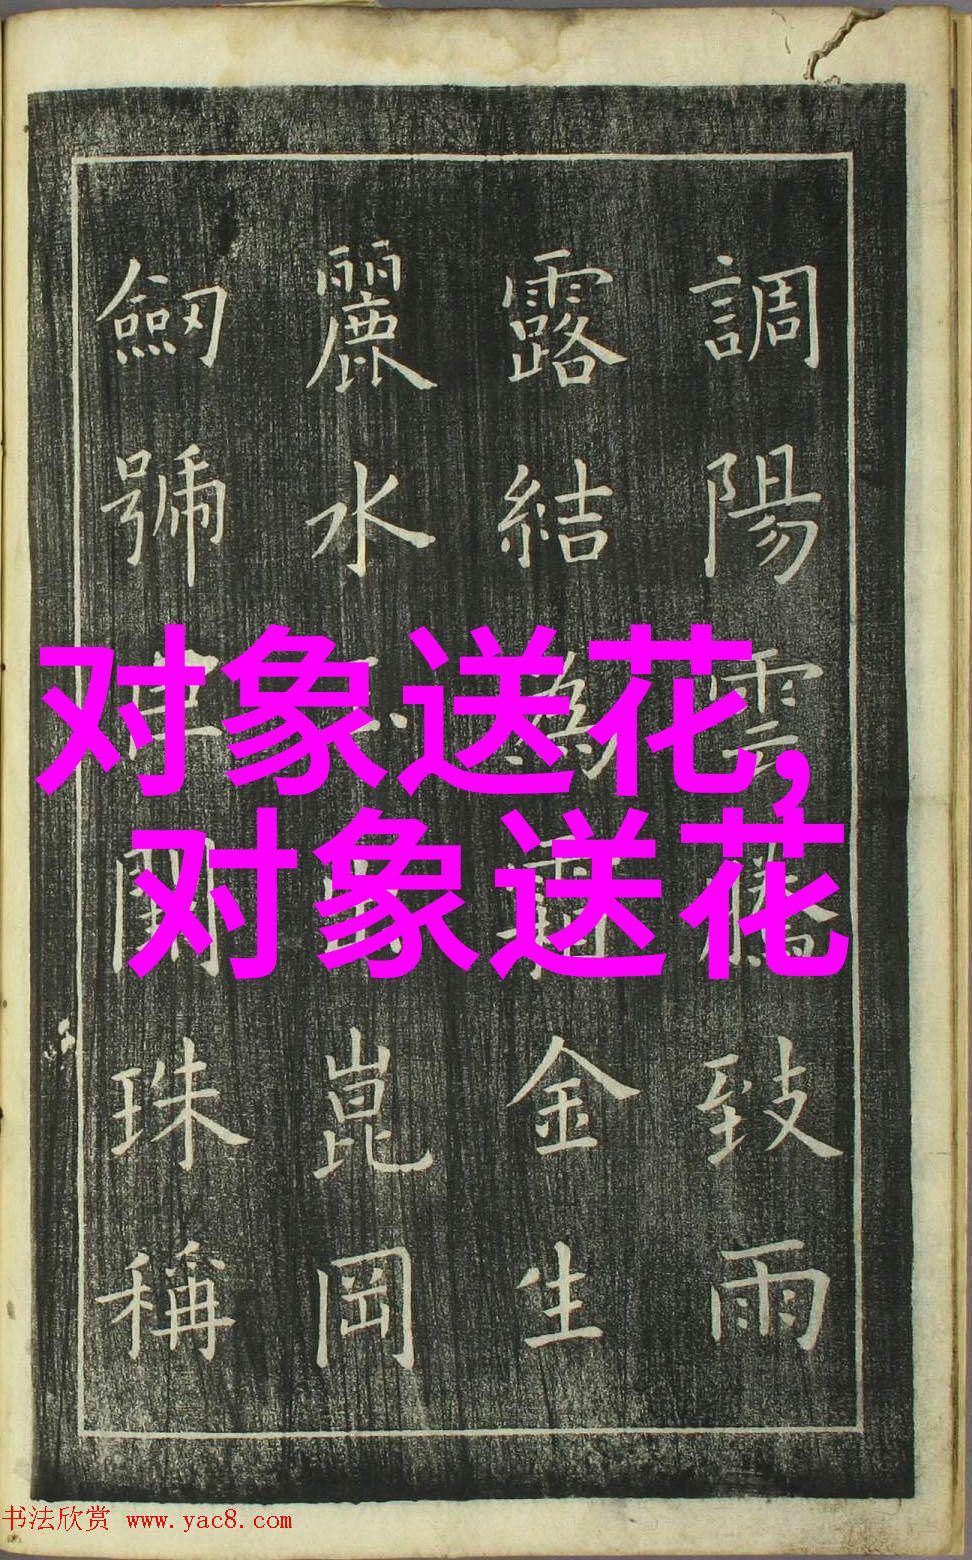 調陽雲騰致雨
露結為霜金生
麗水玉出崑岡
劒號巨闕珠稱
对象送花，
对象送花
书法欣赏 www.yac8.com